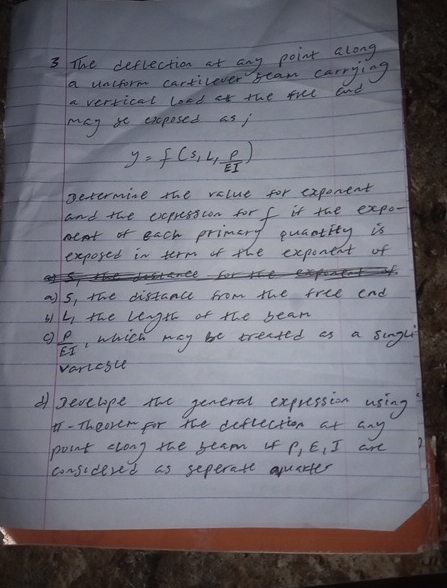 3 The deflection at any point along
a uniform cartilever beam carrying
a vertical load at the free end
may be exposed as ;
y = f (s, L, P/EI)
Determine the value for exponent
and the expression for f if the expo-
nent of each primary quantity is
exposed in term of the exponent of
a) S, the distance for the exponent of
a) S, the distance from the free end
b) L, the length of the beam
c) P/EI, which may be treated as a single
variable
d) Develope the general expression using
π-Theorem for the deflection at any
point along the beam if P, E, I are
considered as seperate